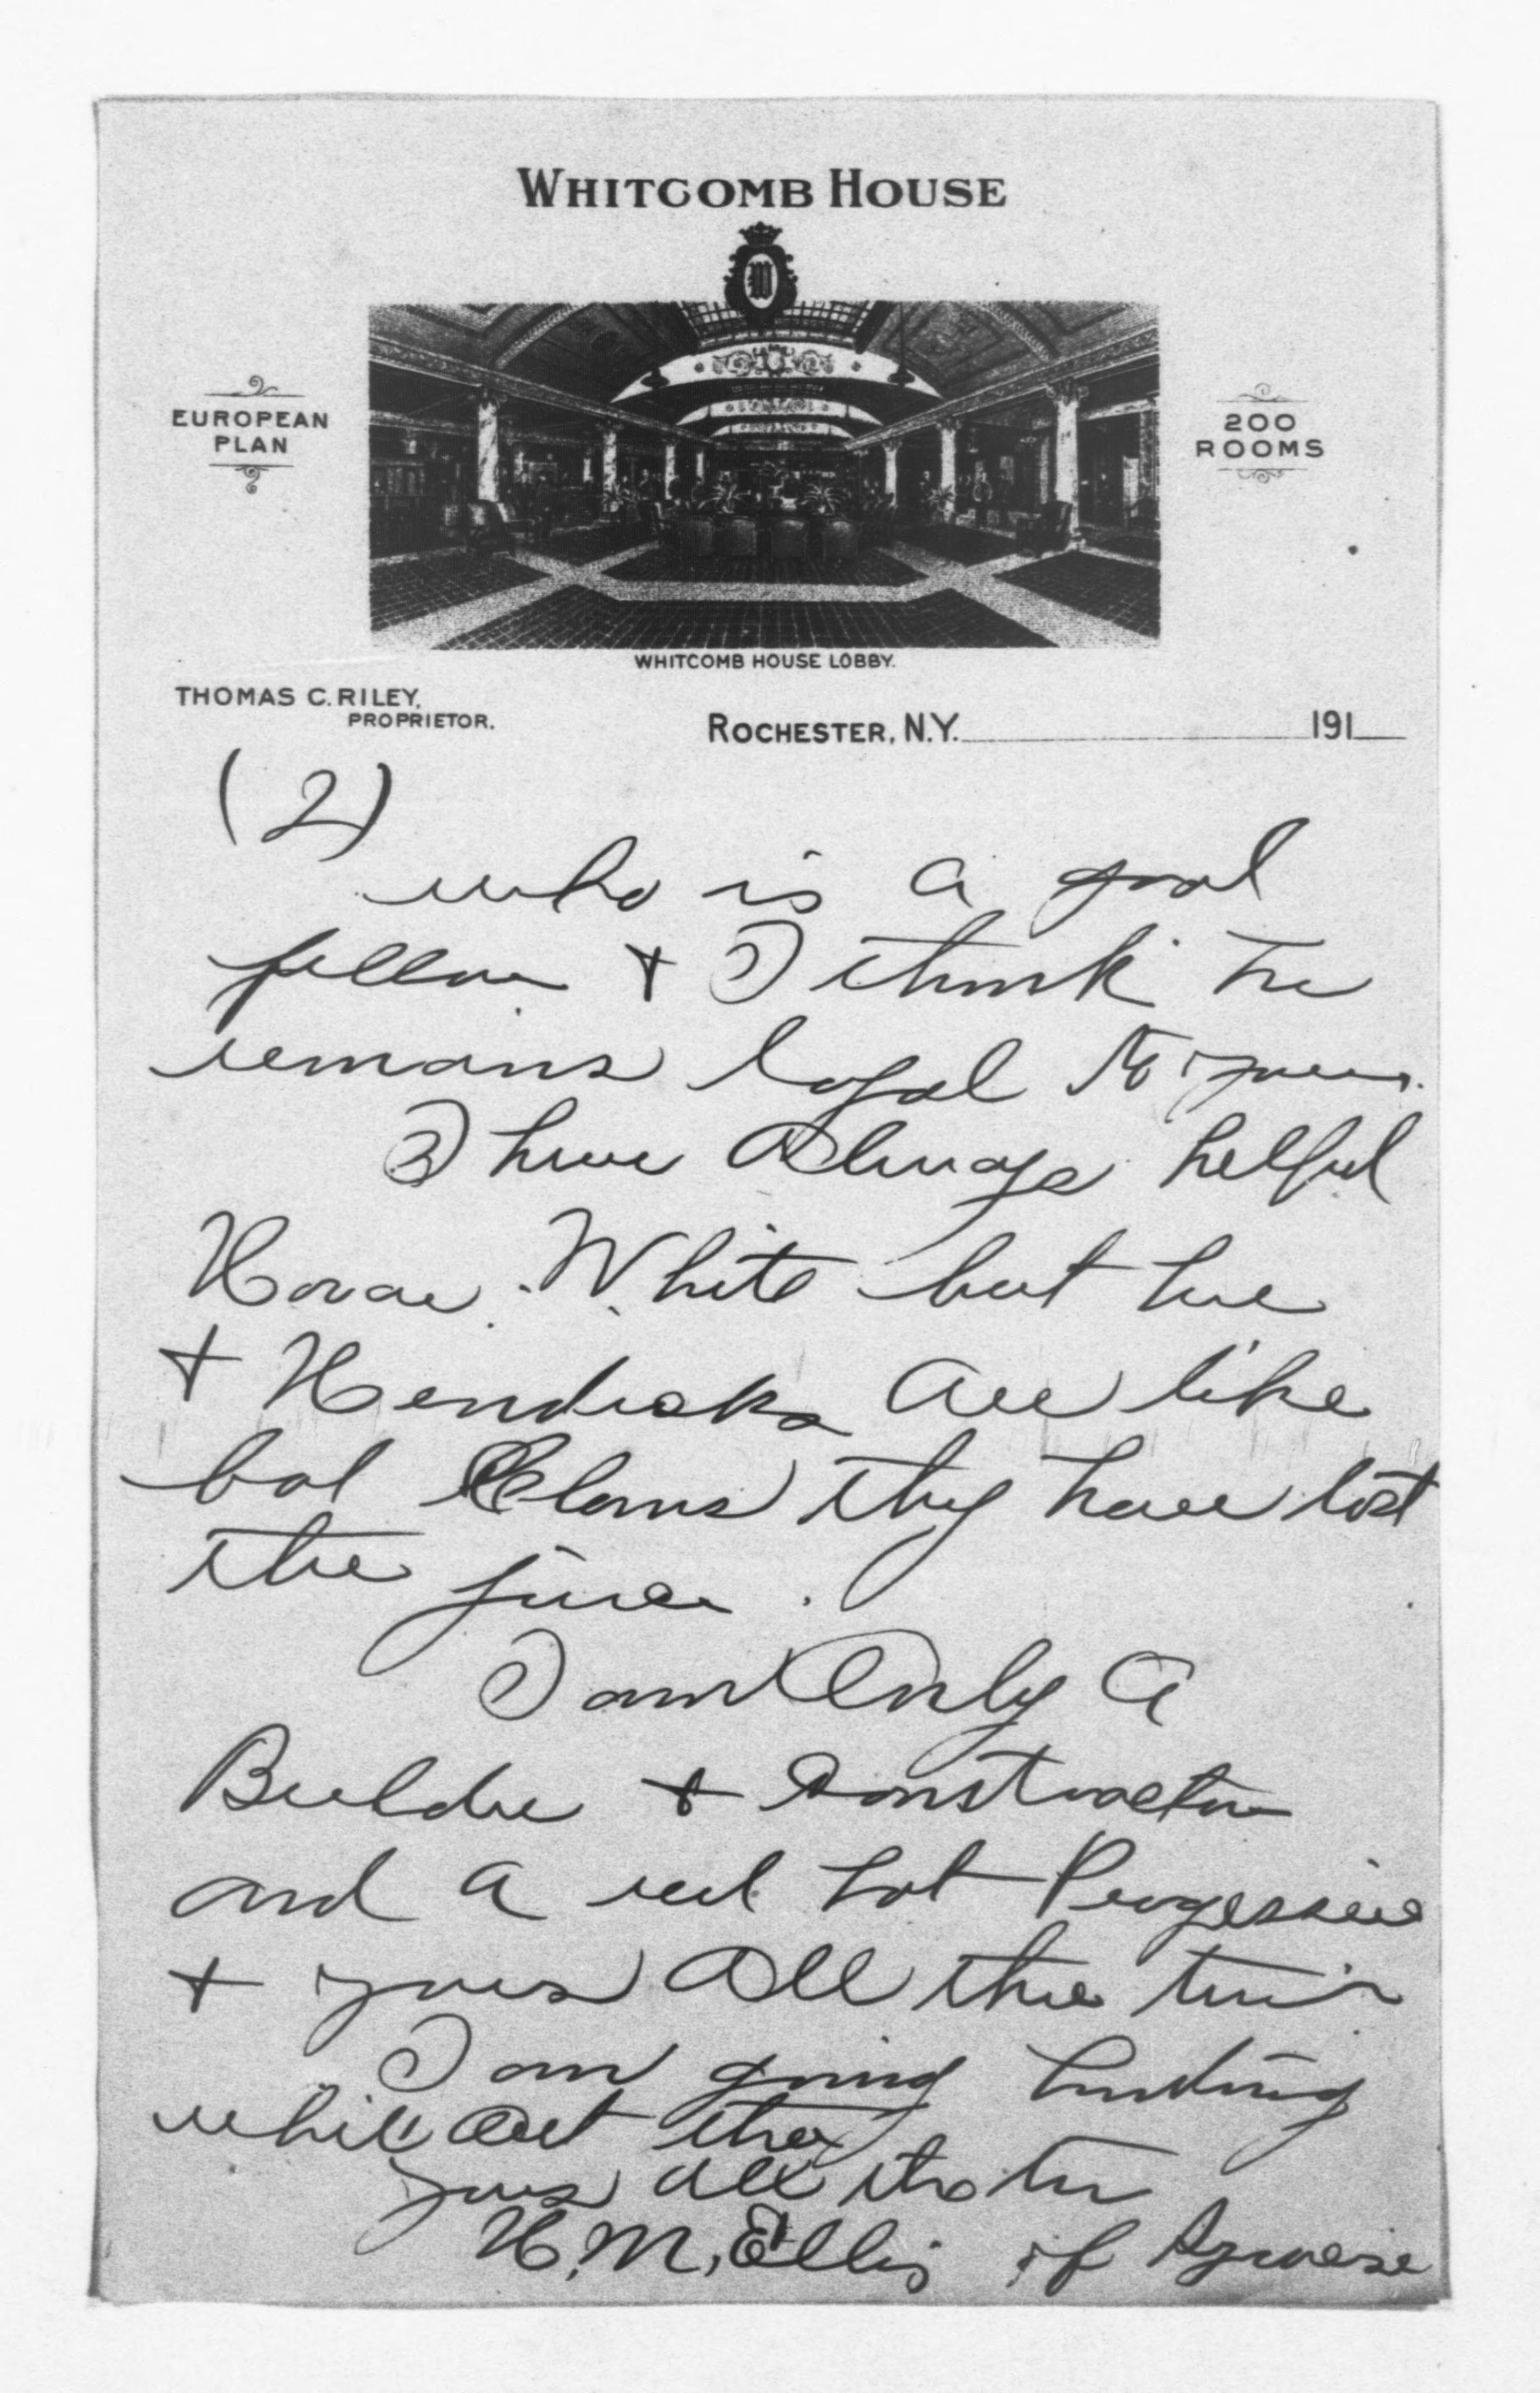 WHITCOMB HOUSE
W
EUROPEAN
PLAN
200
ROOMS
WHITCOMB HOUSE LOBBY.
THOMAS C. RILEY,
PROPRIETOR.
ROCHESTER, N.Y. 191
(2)
who is a good
fellow + I think he
remains loyal to you.
I have Always helped
Horace White but he
+ Hendricks are like
bad Clams they have lost
the juice.
I am Only a
Builder + Constructor
and a red hot Progessive
+ yours All the time
I am going hunting
while out there
yours all the time
H. M. Ellis of Syracuse